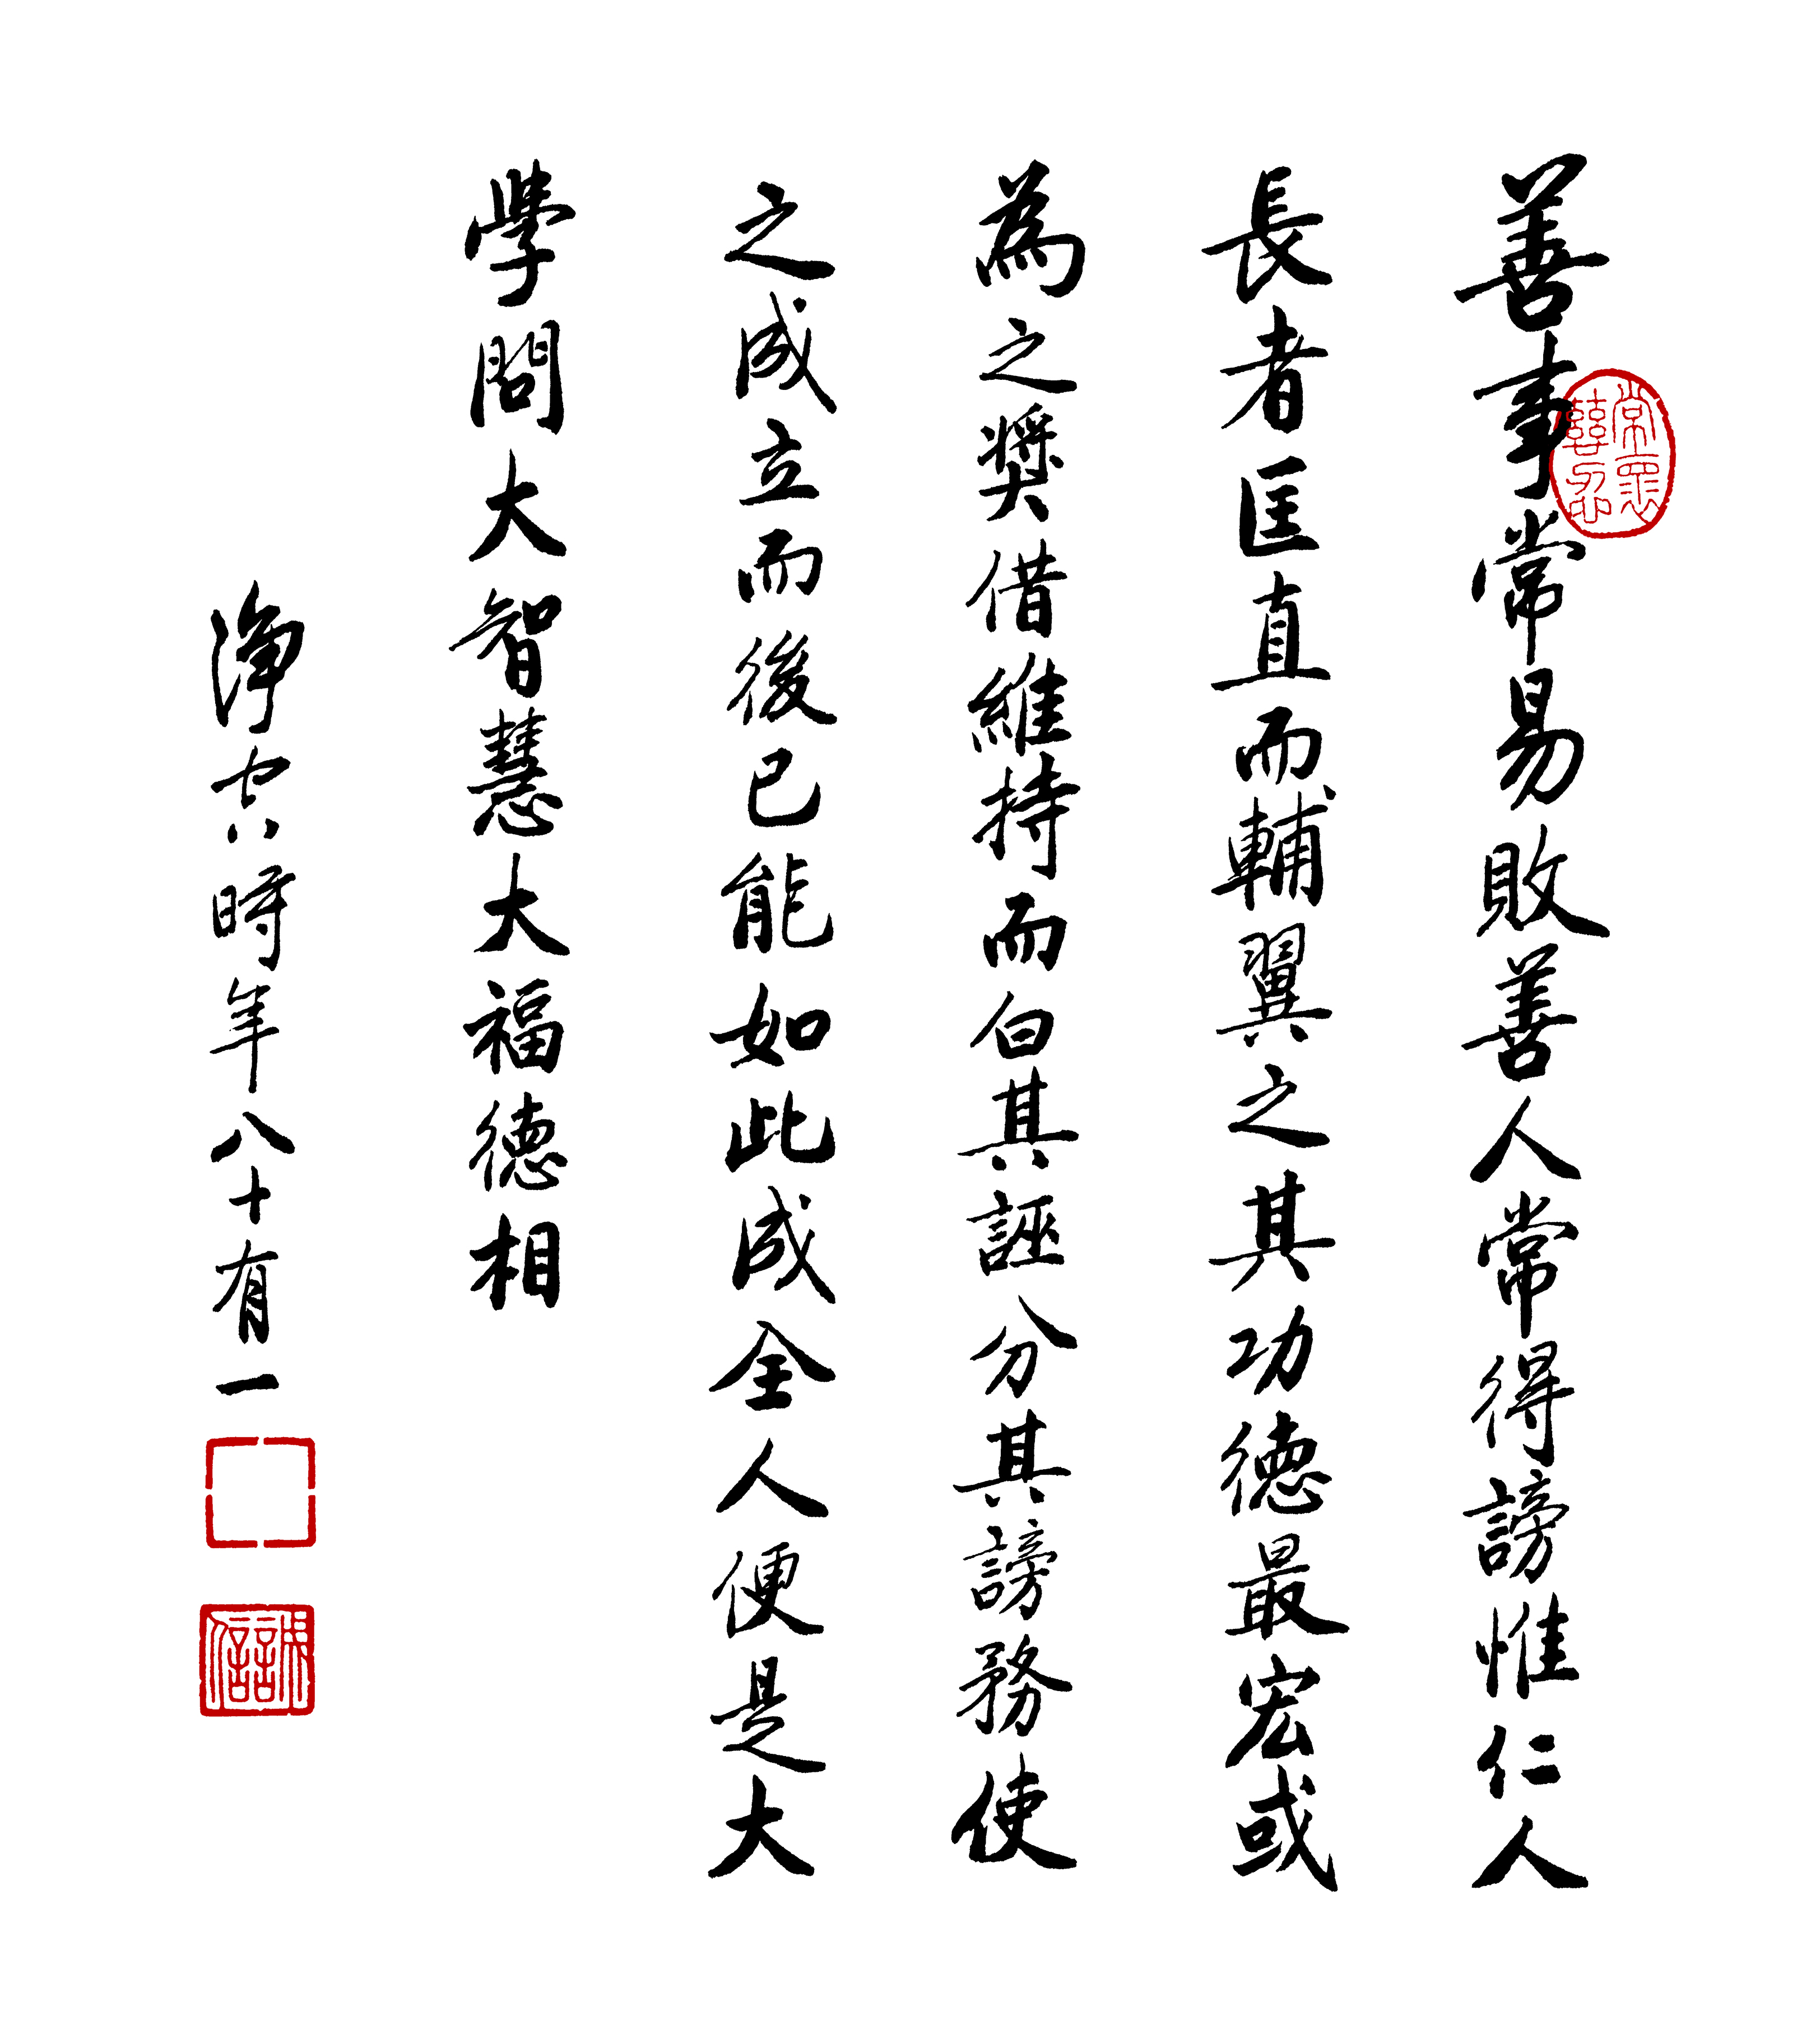 善事常易敗善人常得謗惟仁人
長者匡直而輔翼之其功德最宏或
為之獎借維持而白其誣分其謗務使
之成立而後已能如此成全人便是大
學問大智慧大福德相
淨空時年八十有一